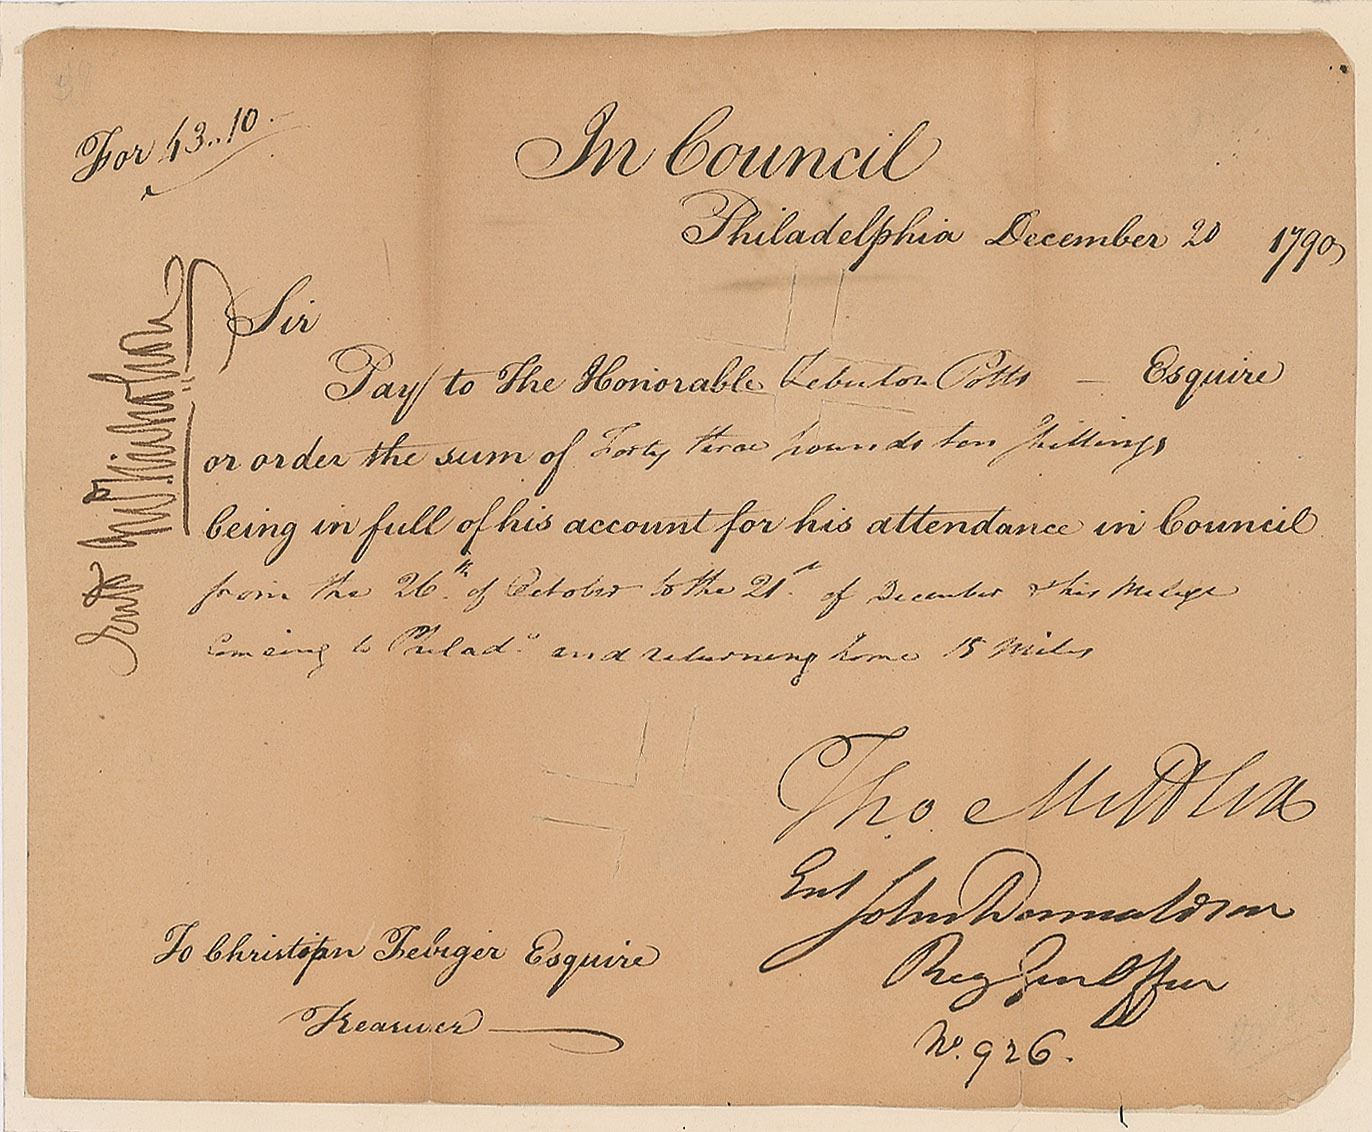 For 43..10.
In Council
Philadelphia December 20 1790
Sir
Pay to The Honorable Zebulon Potts — Esquire
or order the sum of Forty three pounds ten shillings
being in full of his account for his attendance in Council
from the 26th. of October to the 21st. of December & his Milage
Comeing to Philada. and returning home 15 Miles
Jno Nicholson
Tho Mifflin
Ent John Donnaldson
Reg Gen Office
No. 926.
To Christopr Febiger Esquire
Treasurer